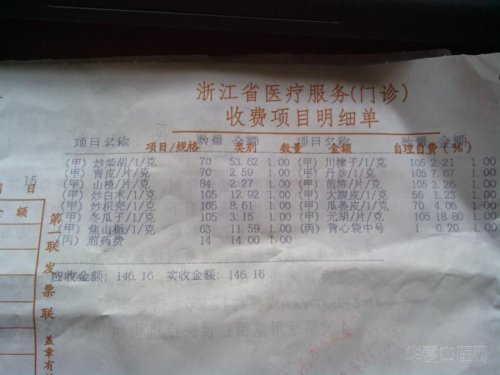 浙江省医疗服务(门诊)
收费项目明细单
项目名称 数量 金额 项目名称 数量 金额
项目/规格 类别 数量 金额 自理自费(%)
(甲) 炒柴胡/1/克 70 53.62 1.00 (甲) 川楝子/1/克 105 2.21 1.00
(甲) 青皮/片/克 70 2.59 1.00 (甲) 丹参/1/克 105 7.67 1.00
(甲) 山楂/片/克 84 2.27 1.00 (甲) 片/克 105 3.26 1.00
(甲) 炒白术/1/克 105 12.92 1.00 (甲) 大腹皮/1/克 56 1.23 1.00
(甲) 炒枳壳/1/克 105 8.61 1.00 (甲) 瓜蒌皮/1/克 70 4.05 1.00
(甲) 冬瓜子/1/克 105 3.15 1.00 (甲) 元胡/片/克 105 18.80 1.00
(甲) 焦山栀/1/克 63 11.59 1.00 (丙) 背心袋中号 1 0.20 1.00
(丙) 煎药费 14 14.00 1.00
应收金额: 146.16 实收金额: 146.16
15
日
金 额
第一联 发票联
盖章有
华夏中医网